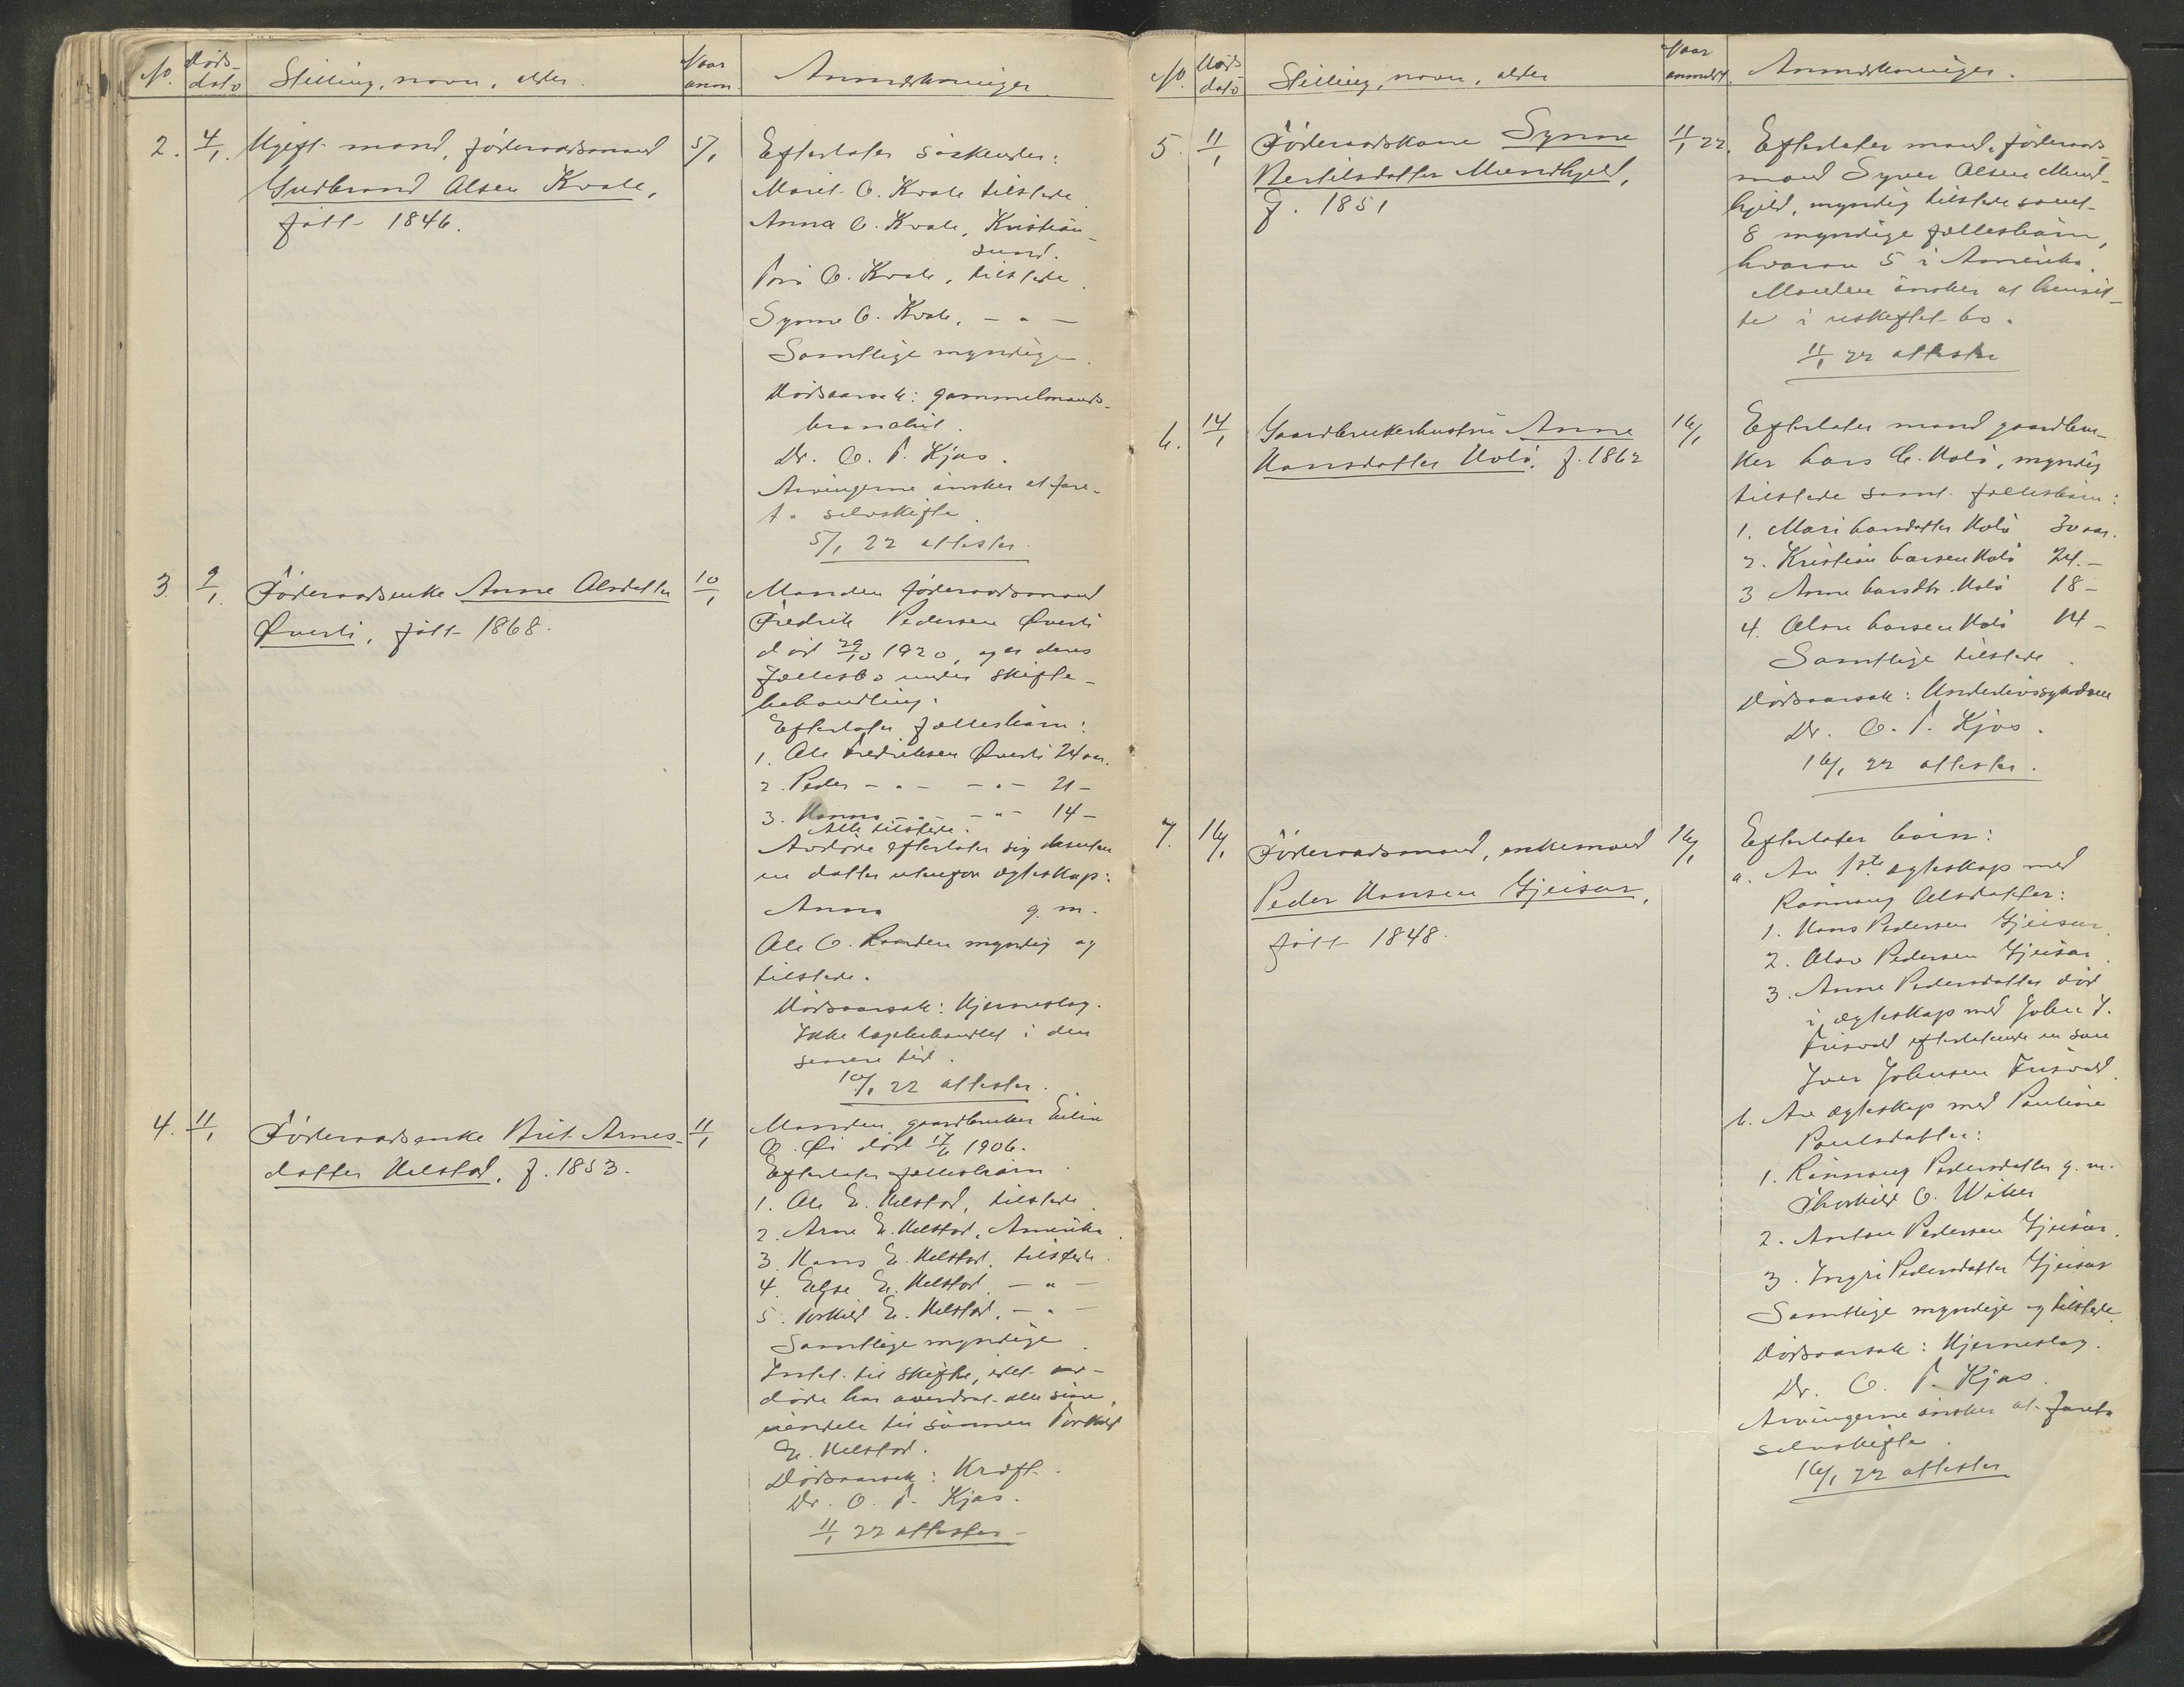 No. Døds-
dato Stilling, navn, alder. Naar
anm. Anmerkninger
2. 4/1. Ugift mand, föderaadsmand
Gudbrand Olsen Kvale,
född 1846.
5/1
Efterlater søskender:
Marit O. Kvale tilstede
Anna O. Kvale, Kristian-
sund.
O. Kvale, tilstede
Synne O. Kvale, — " —
Samtlige myndige.
Dödsaarsak: gammelmands-
bronchit.
Dr. O. T. Kjos.
Arvingerne önsker at fore-
ta selvskifte.
5/1 22 attester.
3. 9/1. Föderaadsenke Anne Olsdatter
Øverli, född 1868.
10/1
Manden föderaadsmand
Fredrik Pedersen Øverli
död 29/10 1920, og er deres
fællesbo under skifte-
behandling.
Efterlater fællesbörn:
1. Ole Fredriksen Øverli 24 aar.
2. Peder — " — — " — 21 —
3. Hanna — " — — " — 14 —
Alle tilstede.
Avdöde efterlater sig desuten
en datter utenfor egteskap:
Anna g. m.
Ole O. Randen myndig og
tilstede.
Dödsaarsak: Hjerneslag.
Ikke lægebehandlet i den
senere tid.
10/1 22 attester.
4. 11/1 Föderaadsenke Brit Arnes-
datter Ulstad, f. 1853.
11/1
Manden, gaardbruker
O. Øi död 17/6 1906.
Efterlater fællesbörn.
1. Ole E. Ulstad, tilstede
2. Arne E. Ulstad, Amerika.
3. Hans E. Ulstad, tilstede.
4. E. Ulstad — " —
5. Torkild E. Ulstad, — " —
Samtlige myndige.
Intet til skifte, idet av-
döde har overdrat alle sine
eiendele til sönnen Torkild
E. Ulstad.
Dödsaarsak: Kræft.
Dr. O. T. Kjos.
11/1 22 attester
No. Døds
dato Stilling, navn, alder Naar
anmeldt. Anmerkninger.
5. 11/1 Föderaadskone Synne
Bertilsdatter Mundhjeld,
f. 1851
11/1 22.
Efterlater mand, föderaads-
mand Syver Olsen Mund-
hjeld, myndig tilstede samt
8 myndige fællesbörn,
hvorav 5 i Amerika.
Manden önsker at hensit-
te i uskiftet bo.
11/1 22 attester
6. 14/1 Gaardbrukerhustru Anne
Hansdatter Holö, f. 1862
16/1
Efterlater mand gaardbru-
ker Lars C. Holö, myndig
tilstede samt fællesbörn:
1. Mari Larsdatter Holö 30 aar.
2. Kristian Larsen Holö 24. —
3 Anne Larsdtr. Holö 18 —
4. Olav Larsen Holö 14 —
Samtlige tilstede.
Dödsaarsak: Underlivssygdom
Dr. O. T. Kjos.
16/1 22 attester.
7. 16/1 Föderaadsmand, enkemand
Peder Hansen Gjeisar,
född 1848.
16/1
Efterlater börn:
a. Av 1ste egteskap med
Rönnaug Olsdatter:
1. Hans Pedersen Gjeisar.
2. Olav Pedersen Gjeisar.
3. Anne Pedersdatter död
i egteskap med Johan J.
Frisvold efterlatende en sön
Iver Johnsen Frisvold.
b. Av egteskap med Pauline
Paulsdatter:
1. Rönnaug Pedersdatter g. m.
Thorkild O.
2. Anton Pedersen Gjeisar.
3. Ingri Pedersdatter Gjeisar
Samtlige myndige og tilstede.
Dödsaarsak: Hjerneslag.
Dr. O. T. Kjos.
Arvingerne önsker at foreta
selvskifte.
16/1 22 attester